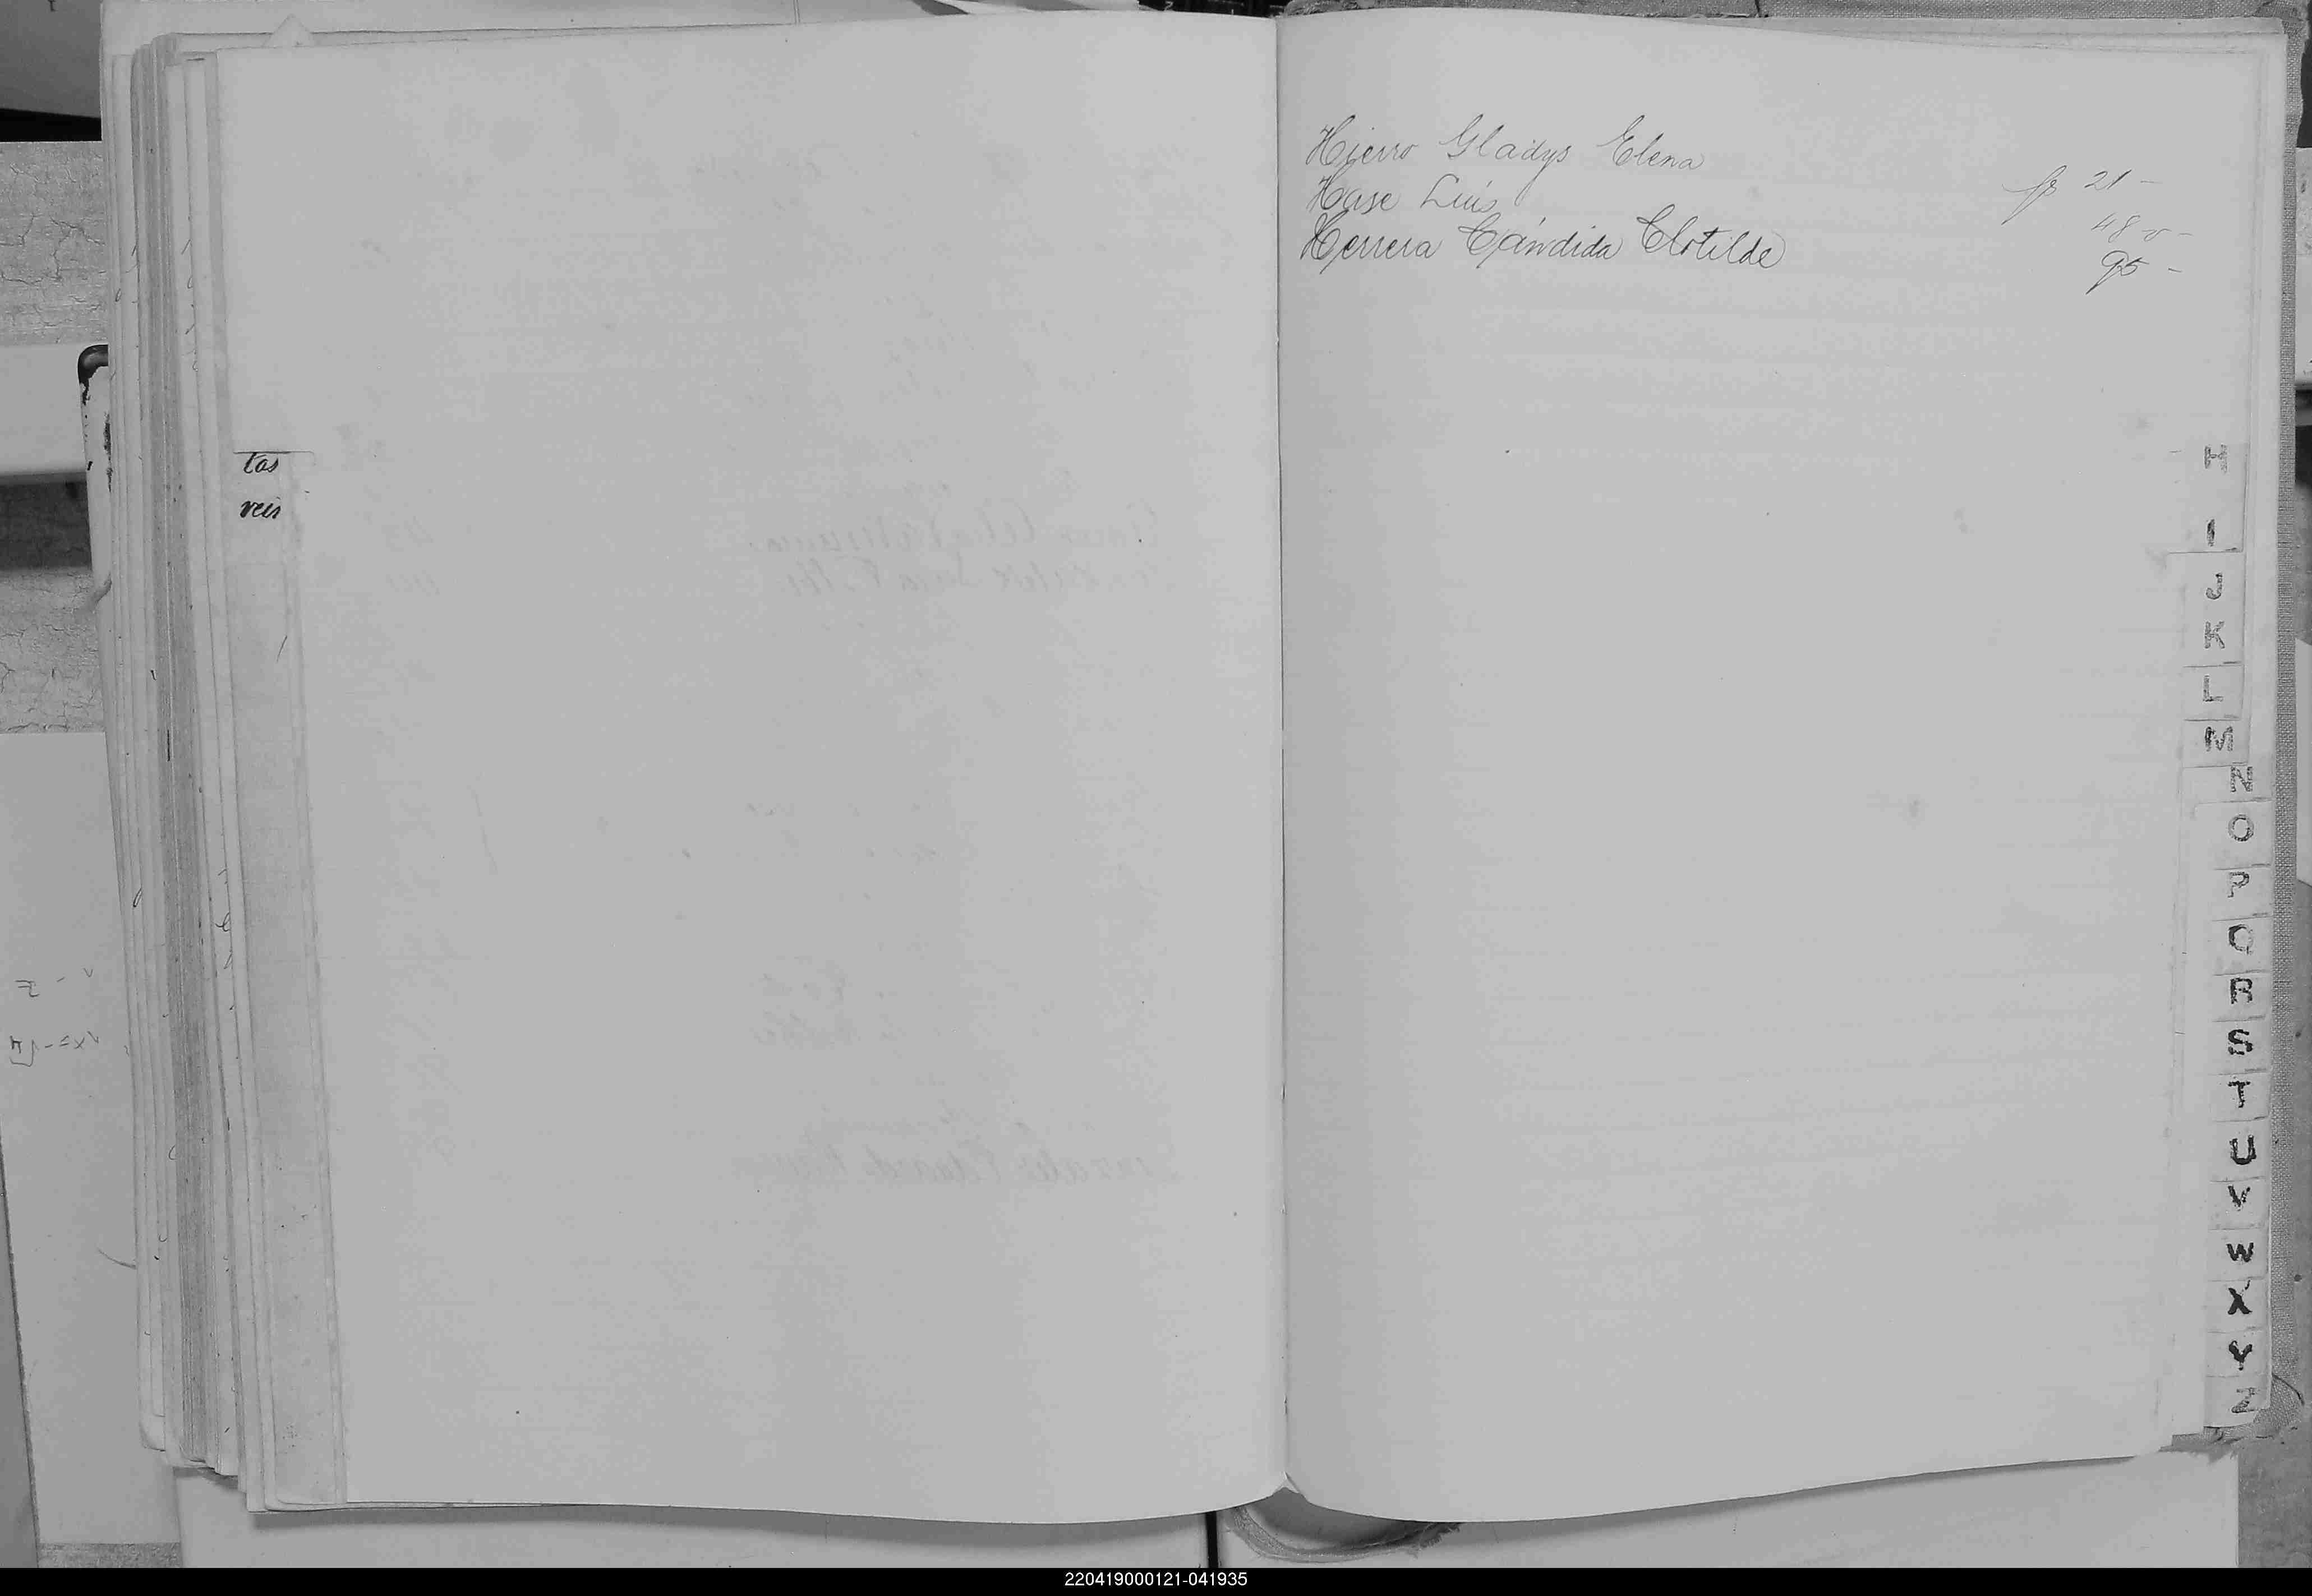 tas
veis
Hierro Gladys Elena fs 21-
Hase Luis 48-v-
Herrera Cándida Clotilde 95-
H
I
J
K
L
M
N
O
P
Q
R
S
T
U
V
W
X
Y
Z
220419000121-041935